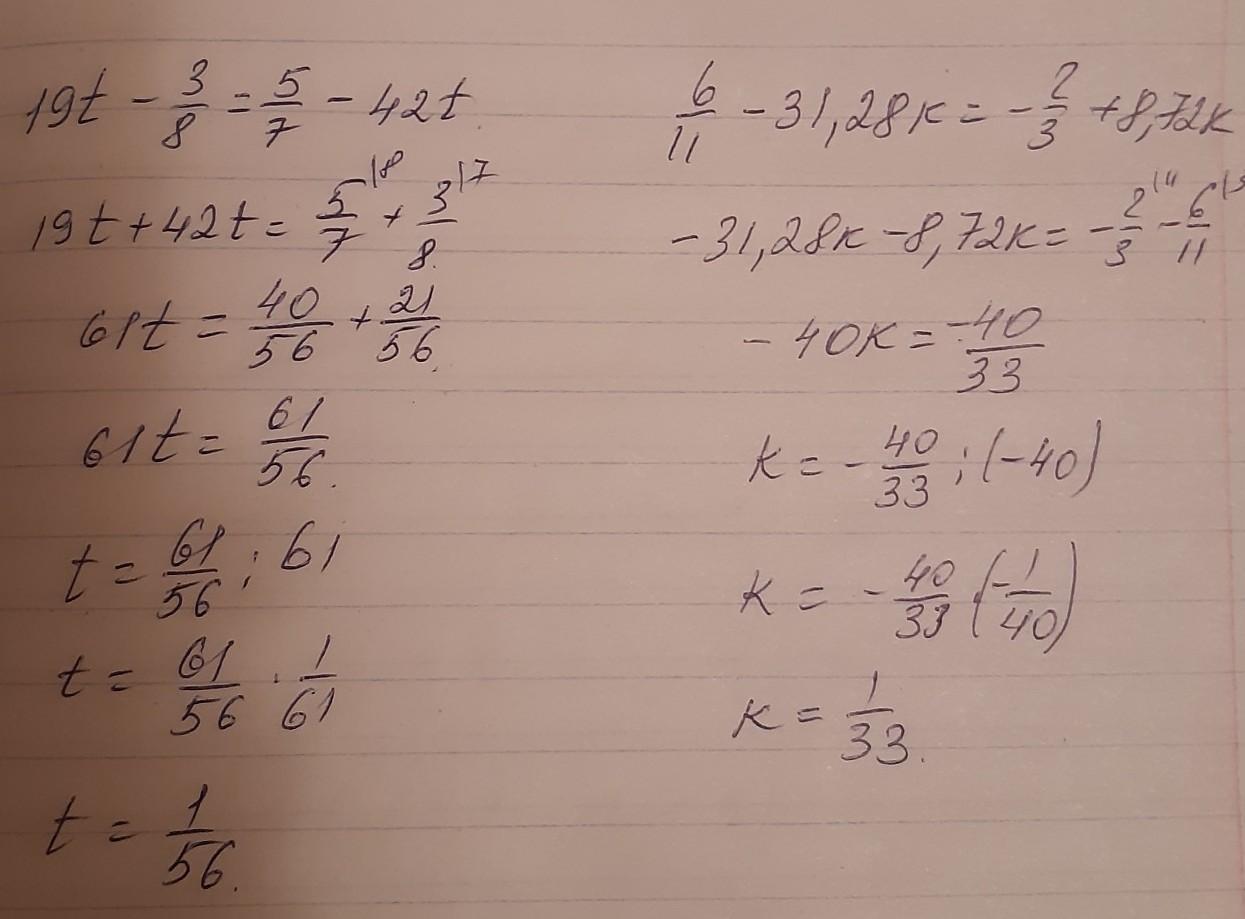 19t - 3/8 = 5/7 - 42t
19t + 42t = 5/7 |8 + 3/8 |7
61t = 40/56 + 21/56
61t = 61/56.
t = 61/56 : 61
t = 61/56 · 1/61
t = 1/56.
6/11 - 31,28к = -2/3 + 8,72к
-31,28к - 8,72к = -2/3 |11 - 6/11 |3
- 40к = -40/33
к = -40/33 : (-40)
к = -40/33 · (-1/40)
к = 1/33.